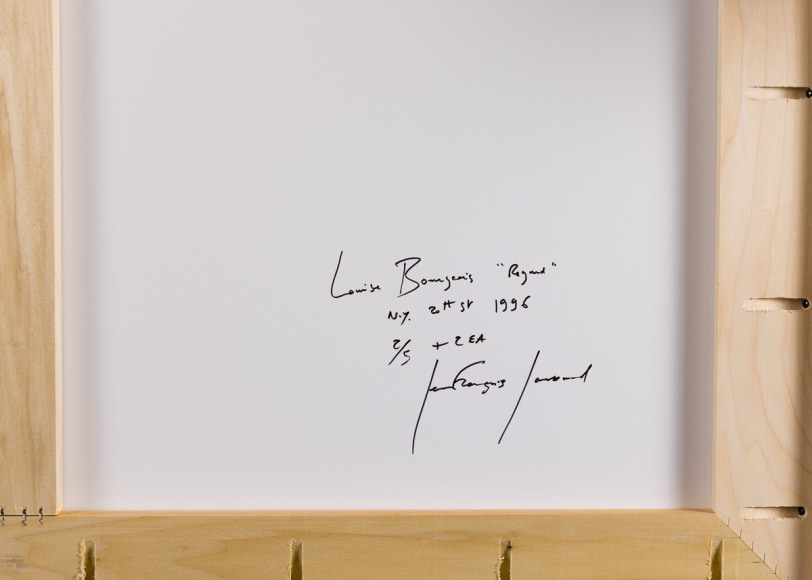 Louise Bourgeois "Regard"
N.Y. 20th St 1996
2/5 + 2 EA
Jean François Jaussaud